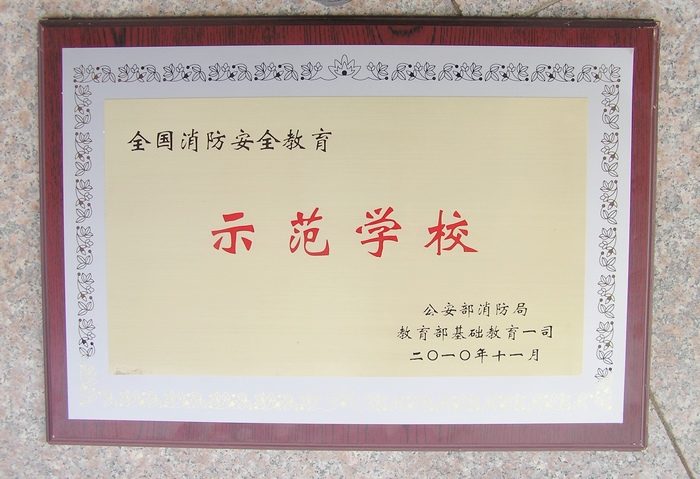 全国消防安全教育
示范学校
公安部消防局
教育部基础教育一司
二〇一〇年十一月